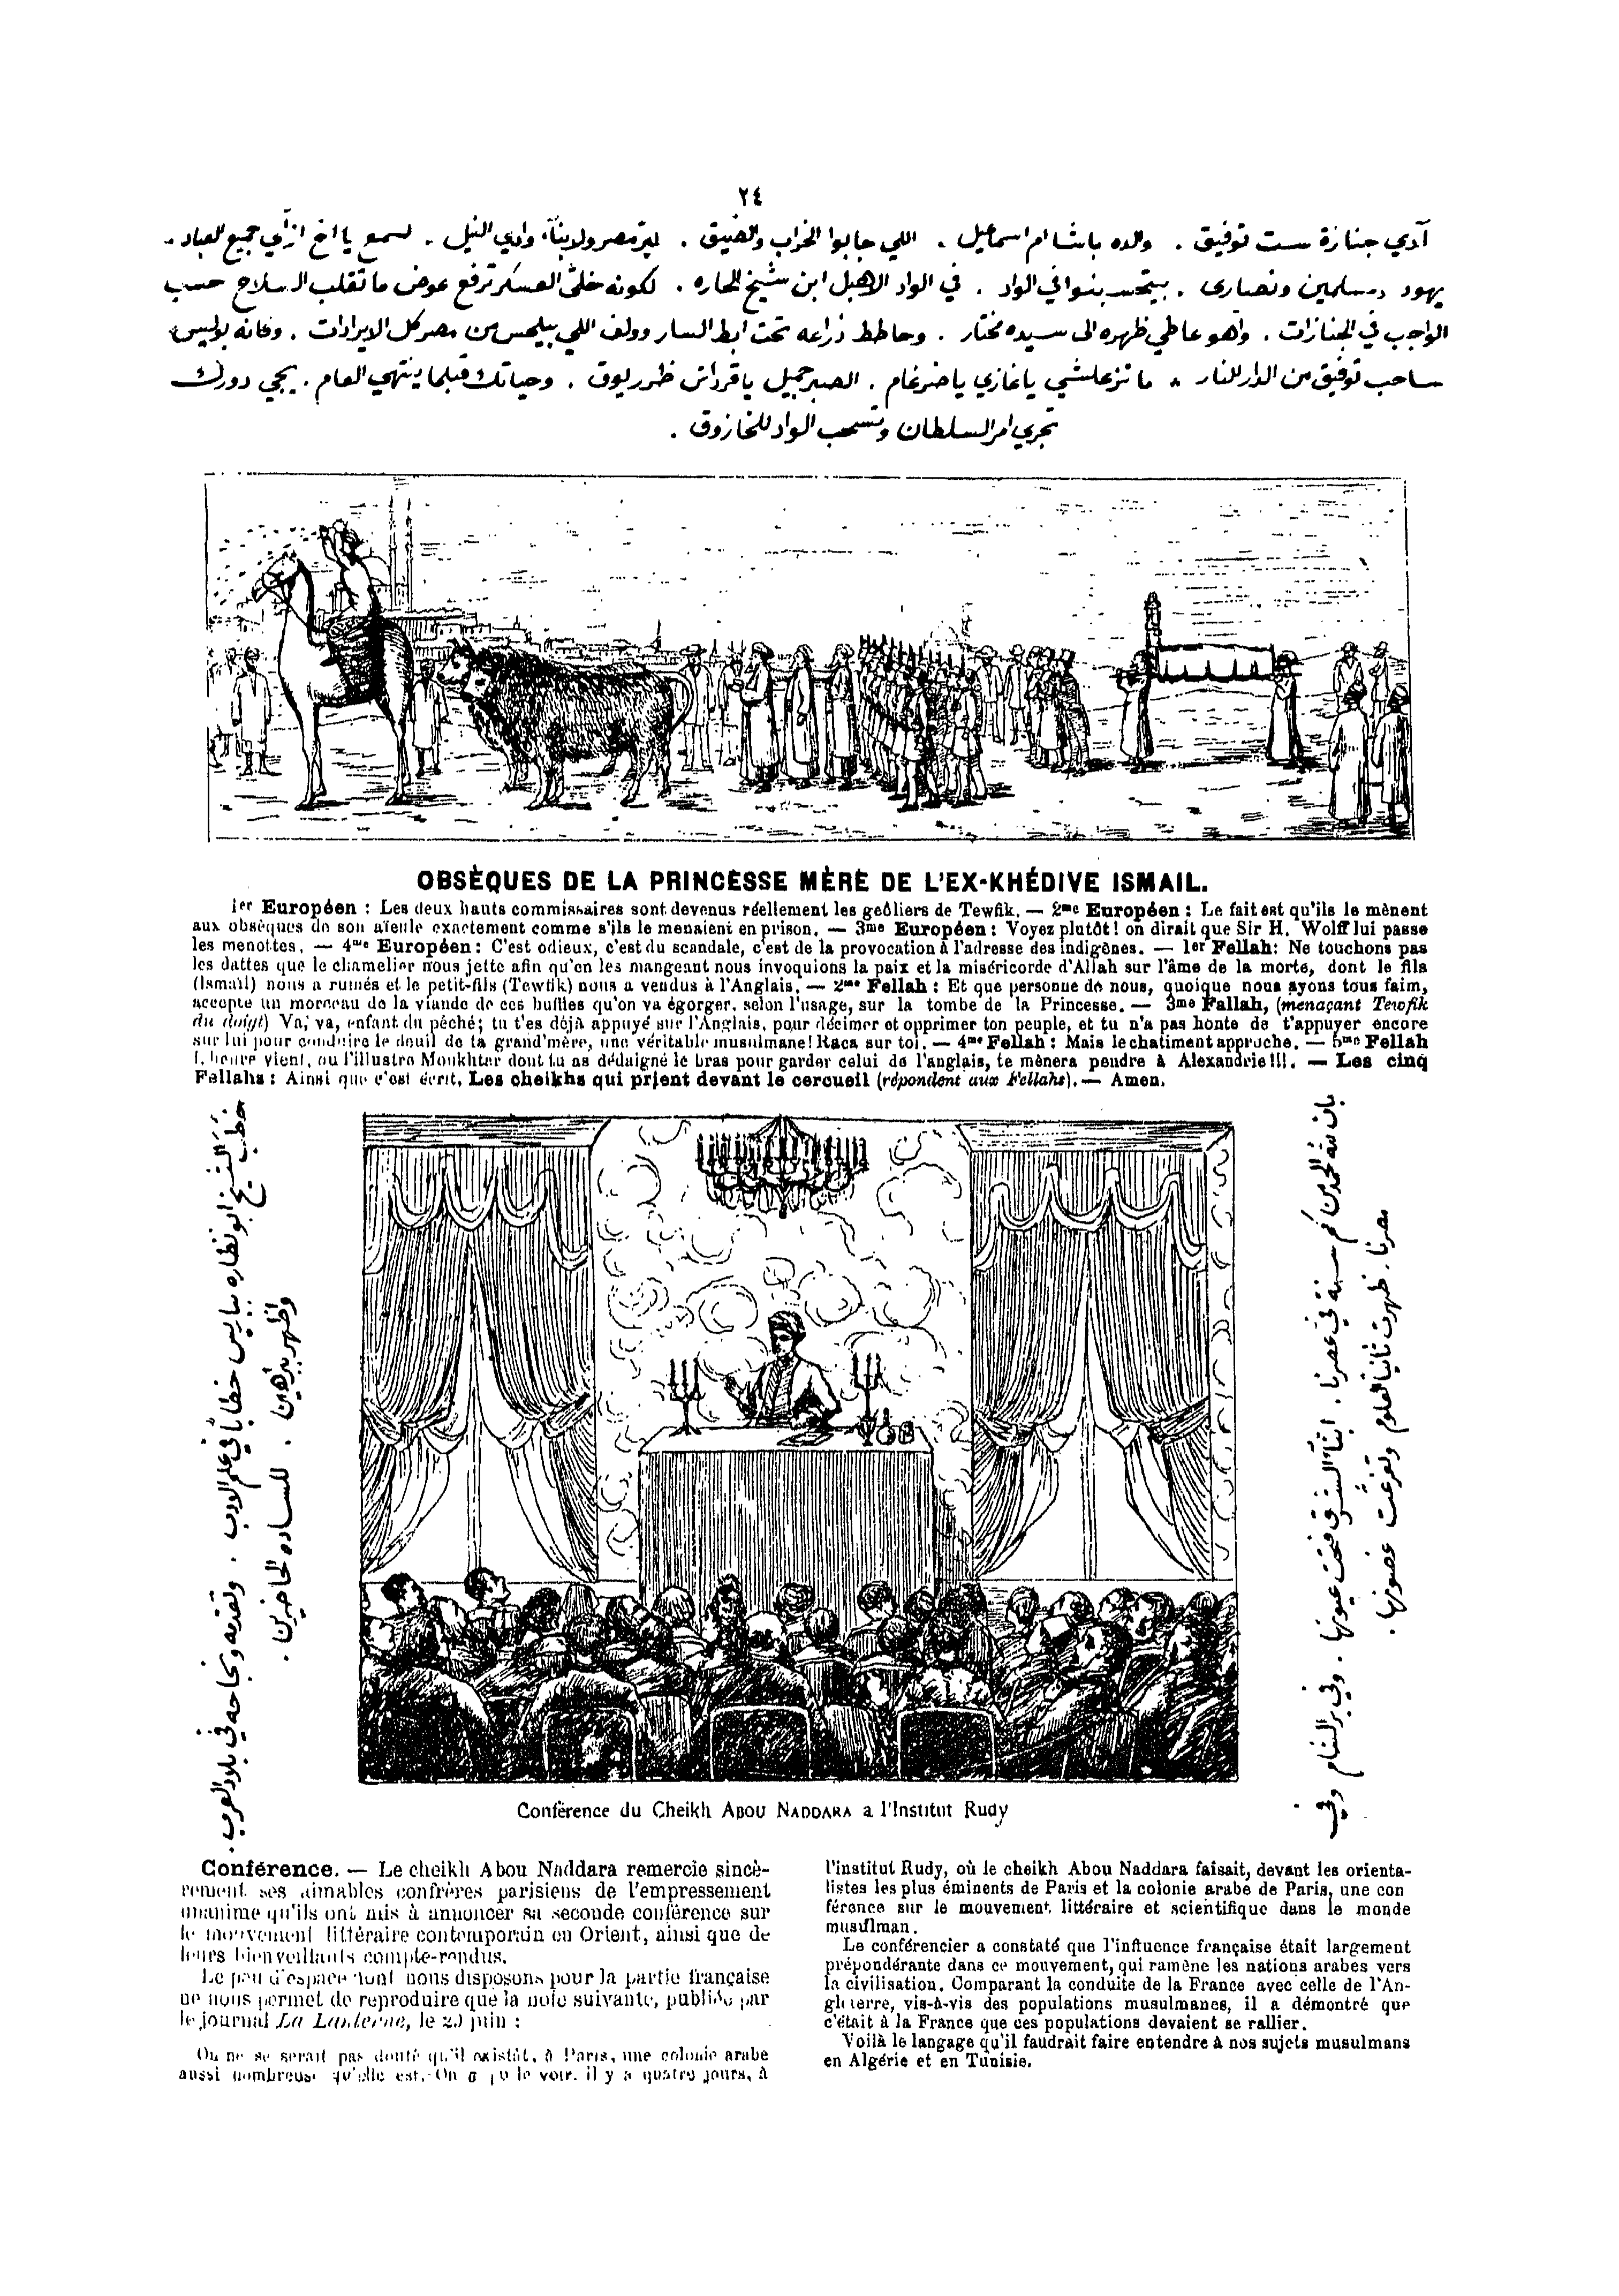 ٢٤
آدي جنازة ست توفيق . والده باشا ام اسماعيل . اللي جابوا الخراب والضيق . لبر مصر ولابناء وادي النيل . اسمع يا اخ ازاي جميع العباد .
يهود ومسلمين ونصارى . في الواد الاهبل ابن شيخ الحاره . لكونه خلى العسكر ترفع عوض ما تقلب السلاح حسب
الواجب في الجنازات . واهو عاطي ظهره الى سيده مختار . وحاطط ذراعه تحت ابط السار وولف اللي بيلحس من مصر كل الايرادات . بوليس
ساحب توفيق من الدار للنار . ما تزعلشي يا غازي يا ضرغام . الصبر جميل يا . وحياتك قبلما ينتهي العام . يجي دورك
تجري امر السلطان وتسحب الواد للخازوق .
OBSÈQUES DE LA PRINCESSE MÈRE DE L'EX-KHÉDIVE ISMAIL.
1er Européen : Les deux hauts commissaires sont devenus réellement les geôliers de Tewfik. — 2me Européen : Le fait est qu'ils le mènent
aux obsèques de son aïeule exactement comme s'ils le menaient en prison. — 3me Européen : Voyez plutôt! on dirait que Sir H. Wolff lui passe
les menottes. — 4me Européen : C'est odieux, c'est du scandale, c'est de la provocation à l'adresse des indigènes. — 1er Fellah: Ne touchons pas
les dattes que le chamelier nous jette afin qu'en les mangeant nous invoquions la paix et la miséricorde d'Allah sur l'âme de la morte, dont le fils
(Ismaïl) nous a ruinés et le petit-fils (Tewfik) nous a vendus à l'Anglais. — 2me Fellah : Et que personne de nous, quoique nous ayons tous faim,
accepte un morceau de la viande de ces buffles qu'on va égorger, selon l'usage, sur la tombe de la Princesse. — 3me Fallah, (menaçant Tewfik
du doigt) Va, va, enfant du péché; tu t'es déjà appuyé sur l'Anglais, pour décimer et opprimer ton peuple, et tu n'a pas honte de t'appuyer encore
sur lui pour conduire le deuil de ta grand'mère, une véritable musulmane! Raca sur toi. — 4me Fellah : Mais le chatiment approche. — 5me Fellah
L'heure vient, ou l'illustre Moukhtar dont tu as dédaigné le bras pour garder celui de l'anglais, te mènera pendre à Alexandrie!!!. — Les cinq
Fellahs : Ainsi que c'est écrit. Les cheikhs qui prient devant le cercueil (répondent aux Fellahs). — Amen.
خطب الشيخ ابو نظاره بباريس خطابا في علم الادب . وتقدمه ونجاحه في بلاد العرب .
واظهر ببراهين . للساده الحاضرين .
بان لله الحمد من كم سنة في عصرنا . ابناء الشرق فتحت عيونها . وفي بر الشام وفي
مصرنا . ظهرت ثانيا العلوم وتفرعت غصونها .
Conférence du Cheikh ABOU NADDARA a l'Institut Rudy
Conférence. — Le cheikh Abou Naddara remercie sincè-
rement ses aimables confrères parisiens de l'empressement
unanime qu'ils ont mis à annoncer sa seconde conférence sur
le mouvement littéraire contemporain en Orient, ainsi que de
leurs bienveillants compte-rendus.
Le peu d'espace dont nous disposons pour la partie française
ne nous permet de reproduire que la note suivante, publiée par
le journal La Lanterne, le juin :
On ne se serait pas douté qu'il existât, à Paris, une colonie arabe
aussi nombreuse qu'elle est. On a pu le voir, il y a quatre jours, à
l'institut Rudy, où le cheikh Abou Naddara faisait, devant les orienta-
listes les plus éminents de Paris et la colonie arabe de Paris, une con
férence sur le mouvement littéraire et scientifique dans le monde
musulman.
Le conférencier a constaté que l'influence française était largement
prépondérante dans ce mouvement, qui ramène les nations arabes vers
la civilisation. Comparant la conduite de la France avec celle de l'An-
gleterre, vis-à-vis des populations musulmanes, il a démontré que
c'était à la France que ces populations devaient se rallier.
Voilà le langage qu'il faudrait faire entendre à nos sujets musulmans
en Algérie et en Tunisie.